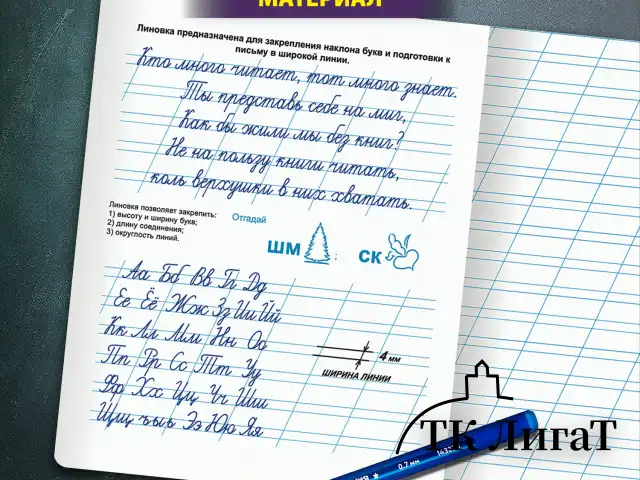 МАТЕРИАЛ
Линовка предназначена для закрепления наклона букв и подготовки к
письму в широкой линии.
Кто много читает, тот много знает.
Ты представь себе на миг,
Как бы жили мы без книг?
Не на пользу книги читать,
коль верхушки в них хватать.
Линовка позволяет закрепить:
1) высоту и ширину букв;
2) длину соединения;
3) округлость линий.
Отгадай
ШМ ;
СК
Аа Бб Вв Гг Дд
Ее Ёё Жж Зз Ии Йй
Кк Лл Мм Нн Оо
Пп Рр Сс Тт Уу
Фф Хх Цц Чч Шш
Щщ ъыь Ээ Юю Яя
4 мм
ШИРИНА ЛИНИИ
ТК ЛигаТ
0.7 мм